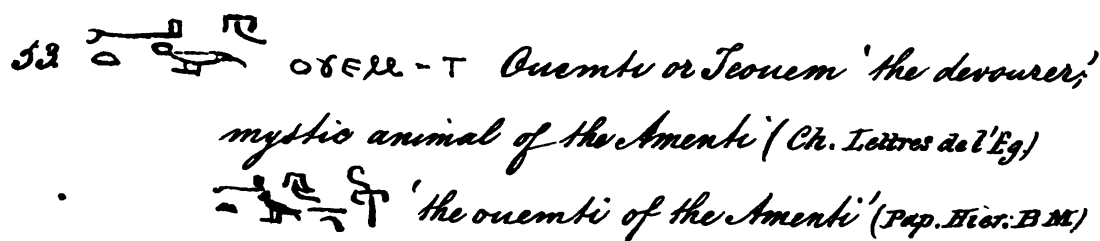 53 ⲟⲩⲉⲙ-ⲧ Ouemti or Teouem 'the devourer,'
mystic animal of the Amenti (Ch. Lettres de l'Eg.)
'the ouemti of the Amenti' (Pap. Hier. B M.)